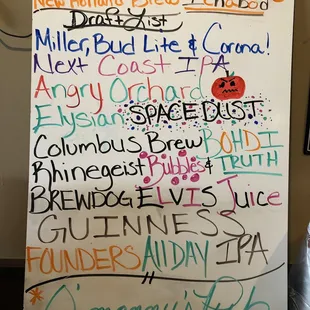 New Holland Brew Ichabod
Draft List
Miller, Bud Lite & Corona!
Next Coast IPA
Angry Orchard
Elysian SPACE DUST
Columbus Brew BOHDI
Rhinegeist Bubbles & TRUTH
BREWDOG ELVIS Juice
GUINNESS
FOUNDERS All DAY IPA
Pub